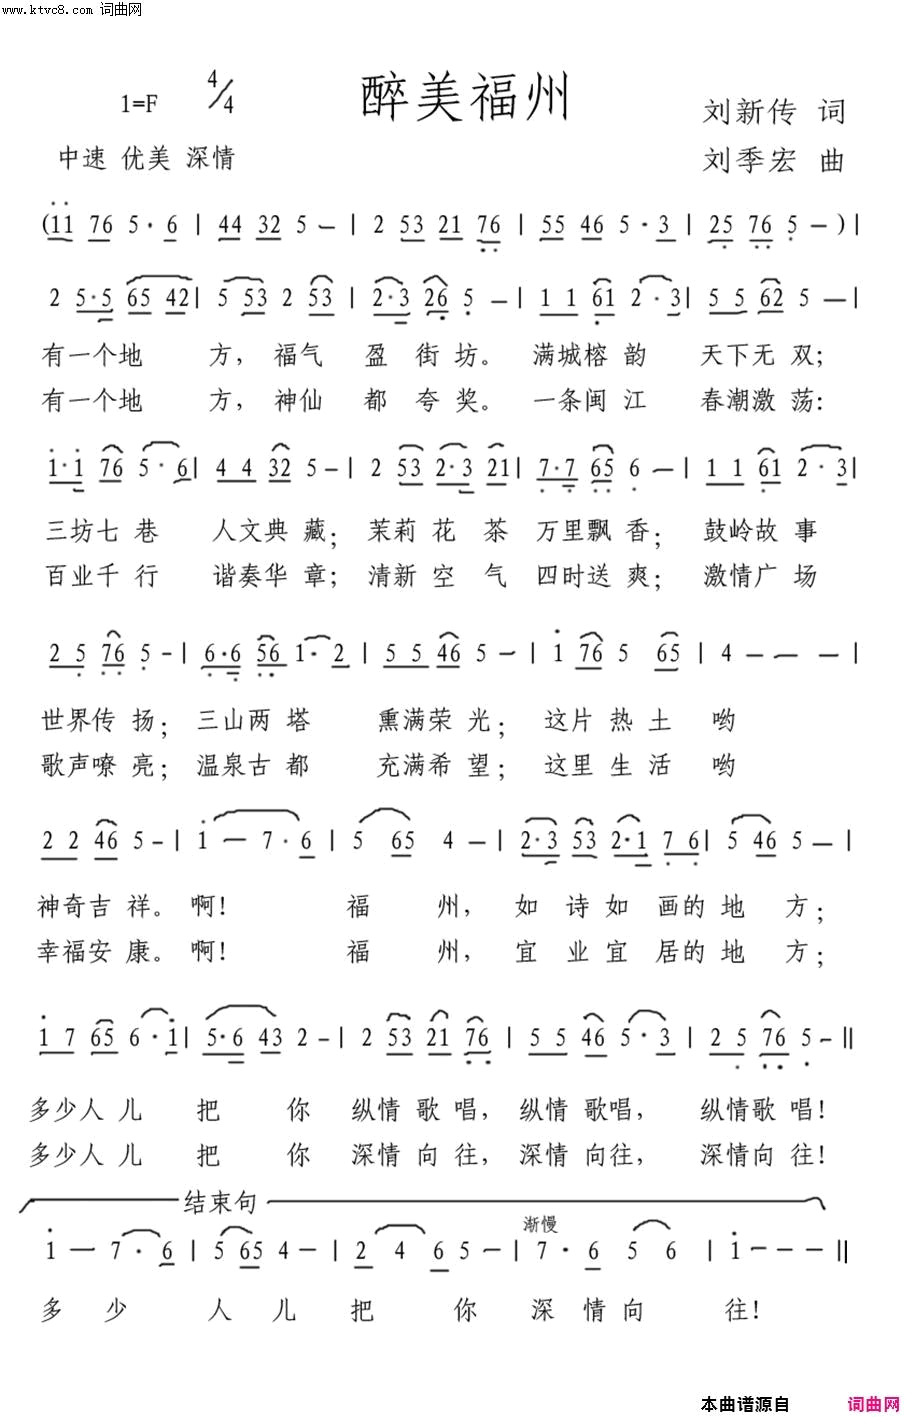 www.ktvc8.com 词曲网
醉美福州
1=F 4/4
刘新传 词
中速 优美 深情
刘季宏 曲
(11 76 5·6 | 44 32 5 – | 2 53 21 76 | 55 46 5·3 | 25 76 5 – )|
2 5·5 65 42| 5 53 2 53 | 2·3 26 5 – | 1 1 61 2·3| 5 5 62 5 – |
有一个地 方, 福气 盈 街 坊。 满城榕 韵 天下无 双;
有一个地 方, 神仙 都 夸 奖。 一条闽 江 春潮激 荡:
1·1 76 5·6| 4 4 32 5 – | 2 53 2·3 21| 7·7 65 6 – | 1 1 61 2·3|
三坊七 巷 人文典 藏; 茉莉 花 茶 万里飘 香; 鼓岭故 事
百业千 行 谐奏华 章; 清新 空 气 四时送 爽; 激情广 场
2 5 76 5 – | 6·6 56 1·2 | 5 5 46 5 – | 1 76 5 65 | 4 — — — |
世界传 扬; 三山两 塔 熏满荣 光; 这片 热 土 哟
歌声嘹 亮; 温泉古 都 充满希 望; 这里 生 活 哟
2 2 46 5 – | 1 — 7·6 | 5 65 4 – | 2·3 53 2·1 7 6| 5 46 5 – |
神奇吉 祥。 啊! 福 州, 如 诗 如 画的 地 方;
幸福安 康。 啊! 福 州, 宜 业 宜 居的 地 方;
1 7 65 6·1| 5·6 43 2 – | 2 53 21 76 | 5 5 46 5·3 | 2 5 76 5 – ‖
多少人 儿 把 你 纵情 歌 唱, 纵情 歌唱, 纵情歌 唱!
多少人 儿 把 你 深情 向 往, 深情 向往, 深情向 往!
结束句
渐慢
1 — 7·6 | 5 65 4 – | 2 4 6 5 – | 7·6 5 6 | 1 – – – ‖
多 少 人 儿 把 你 深 情 向 往!
本曲谱源自 词曲网